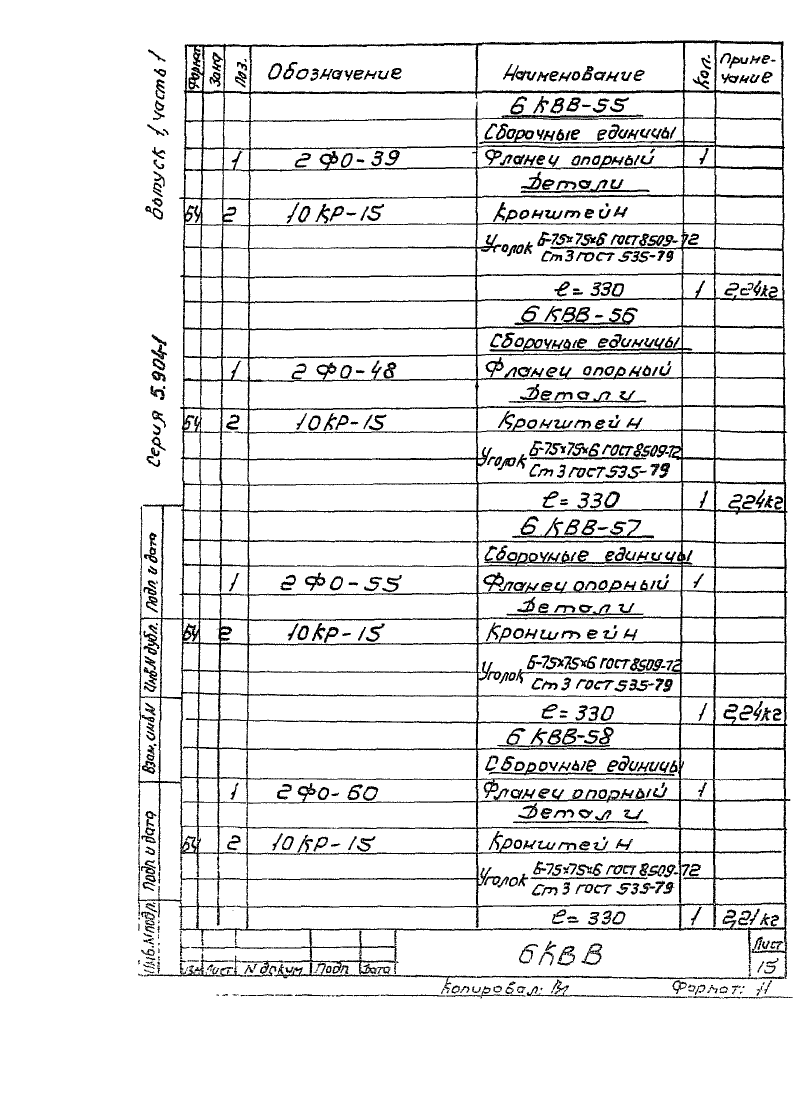 Выпуск 1, часть 1
Серия 5.904-1
Формат Зона Поз. Обозначение Наименование Кол. Примечание
6 КВВ-55
Сборочные единицы
1 2 ФО-39 Фланец опорный 1
Детали
БЧ 2 10 КР-15 Кронштейн
Уголок Б-75×75×6 ГОСТ 8509-72
Ст 3 ГОСТ 535-79
ℓ= 330 1 2,24кг
6 КВВ-56
Сборочные единицы
1 2 ФО-48 Фланец опорный 1
Детали
БЧ 2 10КР-15 Кронштейн
Уголок Б-75×75×6 ГОСТ 8509-72
Ст 3 ГОСТ 535-79
ℓ= 330 1 2,24кг
6 КВВ-57
Сборочные единицы
1 2 ФО-55 Фланец опорный 1
Детали
БЧ 2 10КР-15 Кронштейн
Уголок Б-75×75×6 ГОСТ 8509-72
Ст 3 ГОСТ 535-79
ℓ= 330 1 2,24кг
6 КВВ-58
Сборочные единицы
1 2 ФО-60 Фланец опорный 1
Детали
БЧ 2 10 КР-15 Кронштейн
Уголок Б-75×75×6 ГОСТ 8509-72
Ст 3 ГОСТ 535-79
ℓ= 330 1 2,21кг
Инв.№подл. Подп. и дата Взам. инв.№ Инв.№ дубл. Подп. и дата
Изм Лист № докум. Подп. Дата
6КВВ
Лист
15
Копировал:
Формат: 11